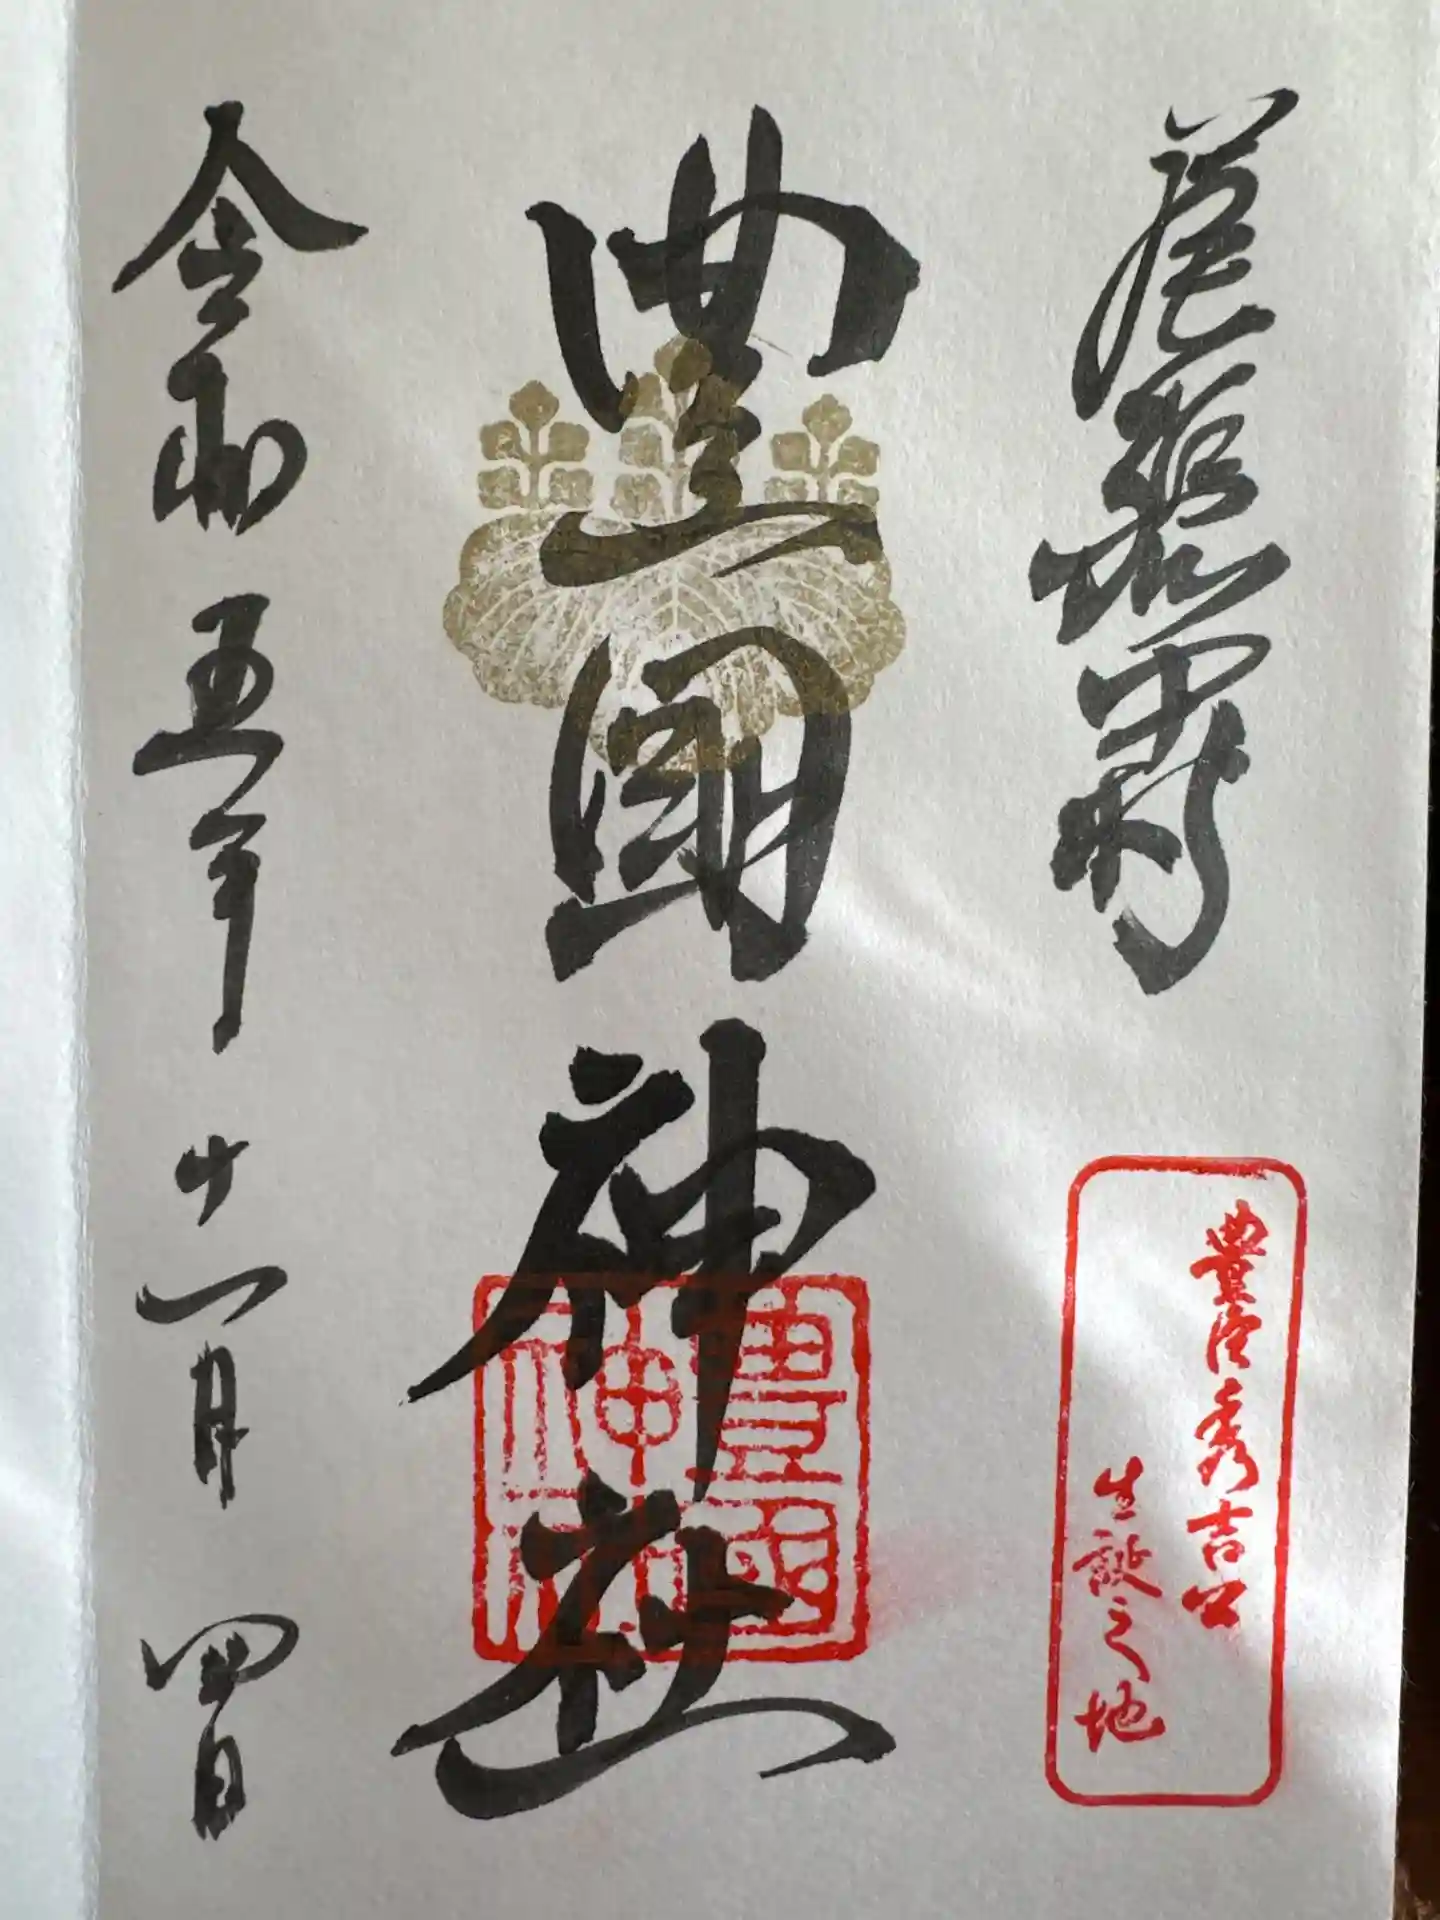 豊臣秀吉公
生誕之地
豊國神社
豊國
神社
令和五年十一月四日